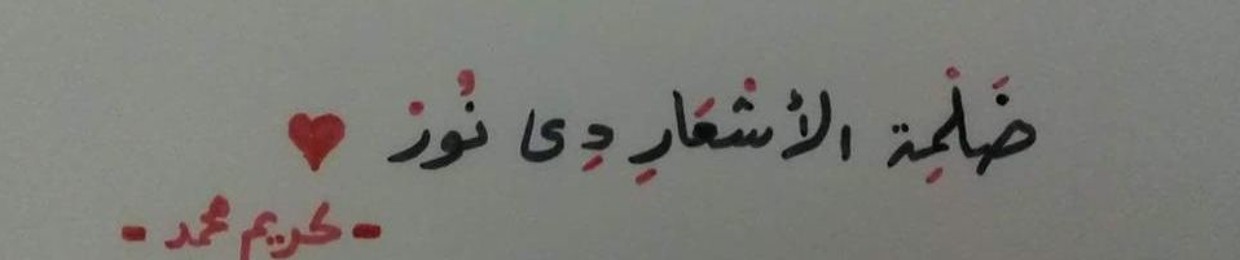 ضَلْمِة الأشْعَارِ دِى نُورْ ♥
- كريم محمد -